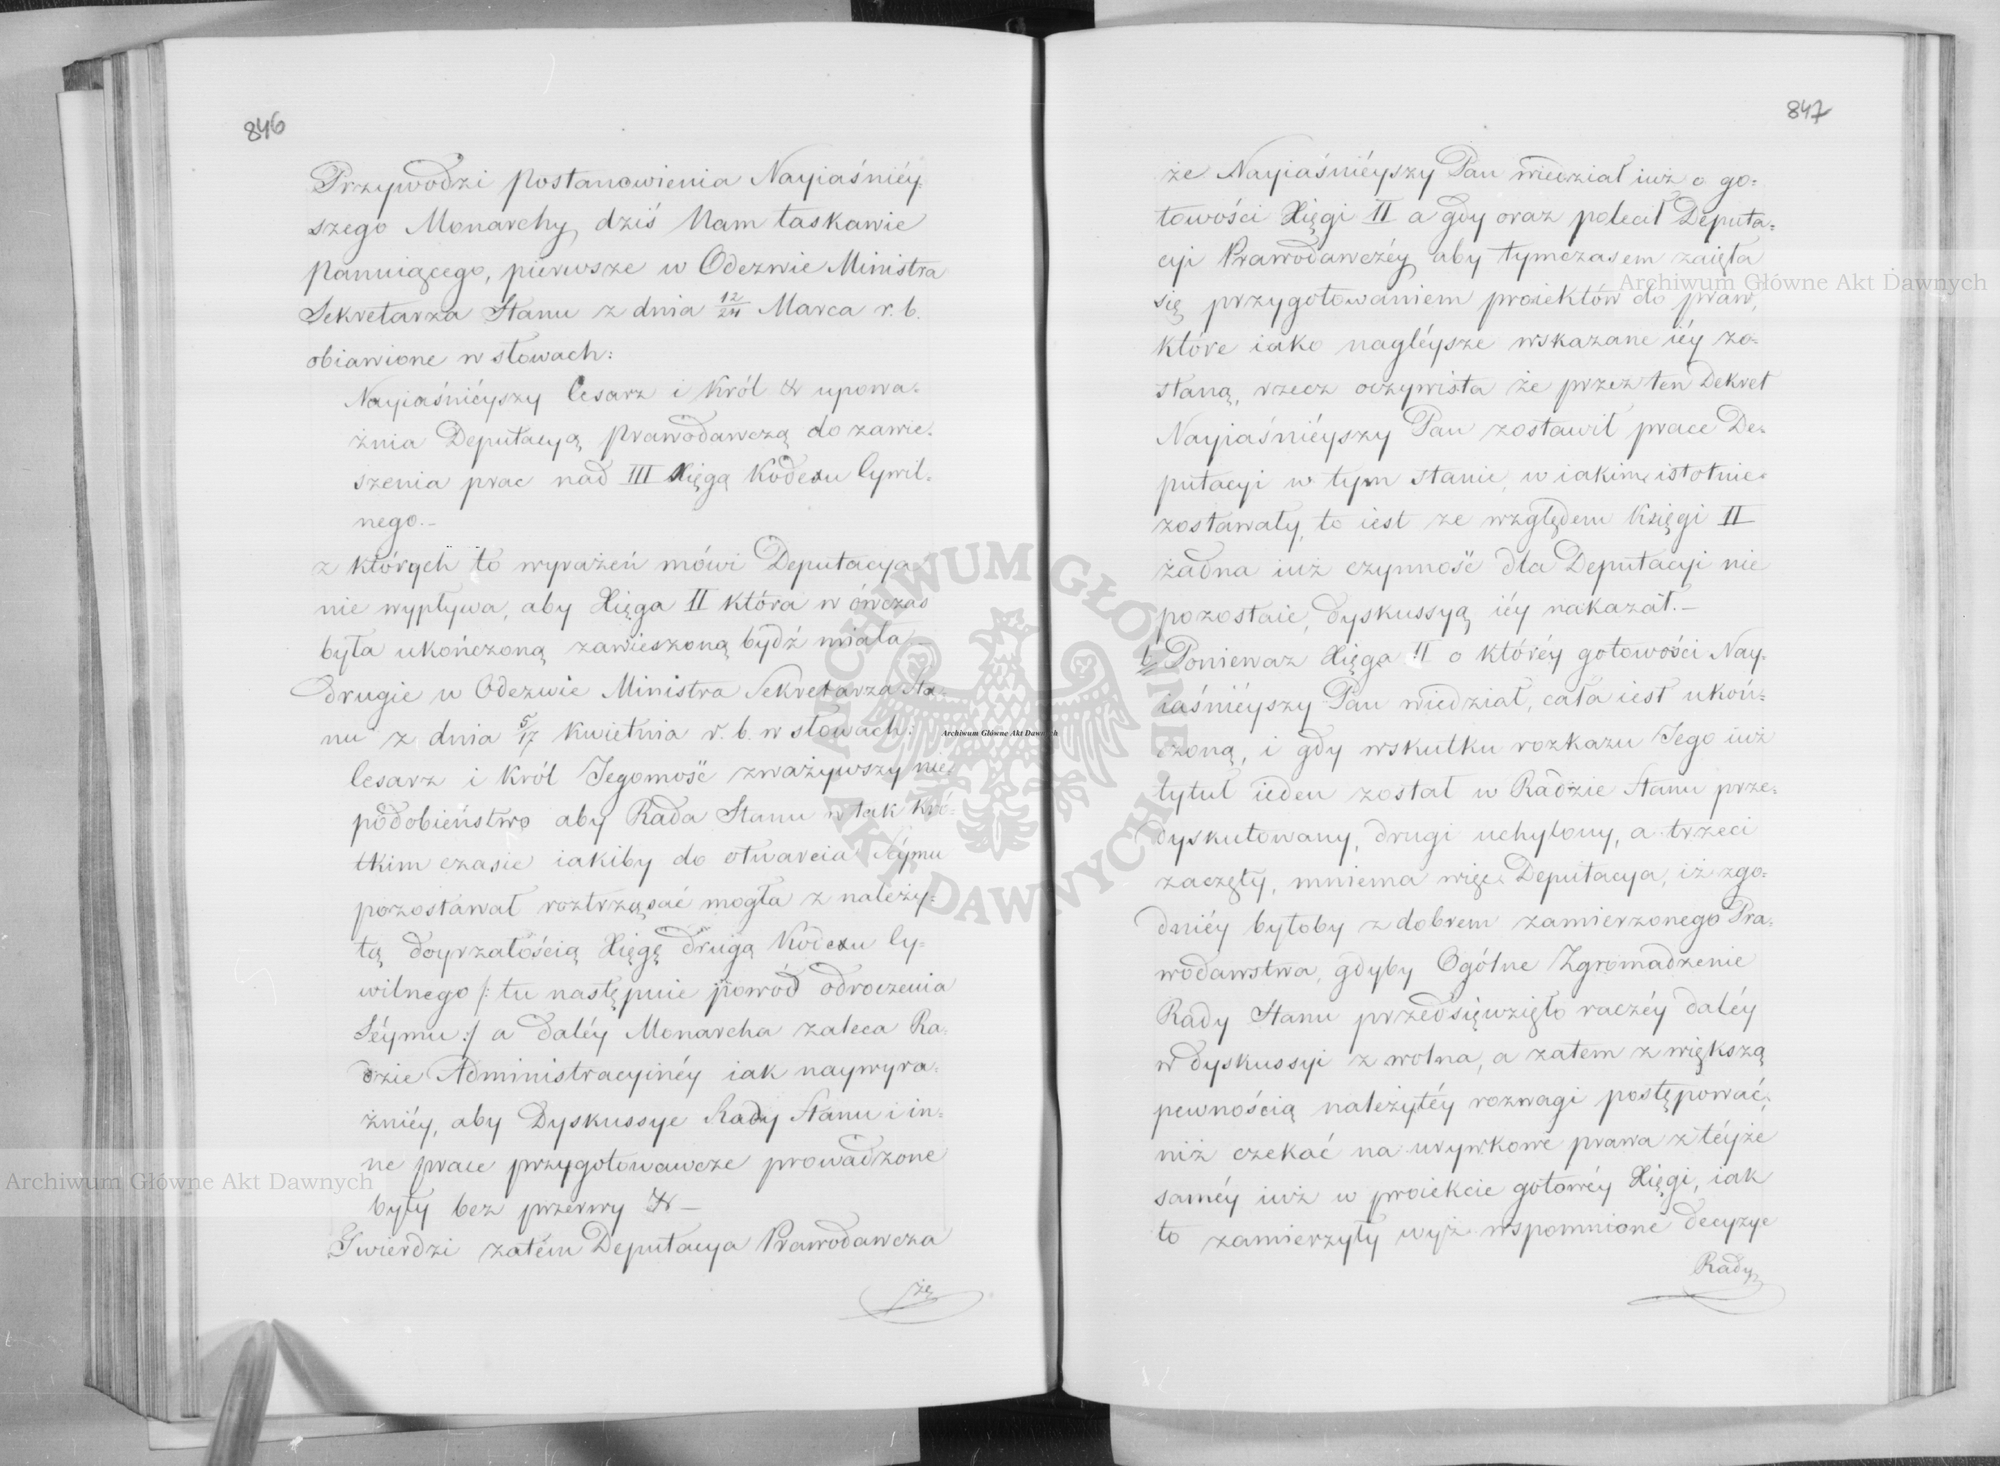 846
Przywodzi postanowienia Nayiaśniéy-
szego Monarchy dziś Nam łaskawie
Panuiącego, pierwsze w Odezwie Ministra
Sekretarza Stanu z dnia 12/24 Marca r. b.
obiawione w słowach:
Nayiaśniéyszy Cesarz i Król & upowa-
żnia Deputacyą Prawodawczą do zawie-
szenia prac nad III Xięgą Kodexu Cywil-
nego.-
z których to wyrażeń mówi Deputacya
nie wypływa, aby Xięga II która w ówczas
była ukończoną zawieszoną bydź miała -
drugie w Odezwie Ministra Sekretarza Sta-
nu z dnia 5/17 Kwietnia r. b. w słowach:
Cesarz i Król Jegomość zważywszy nie-
podobieństwo aby Rada Stanu w tak kró-
tkim czasie iakiby do otwarcia Séymu
pozostawał roztrząsać mogła z należy-
tą doyrzałością Xięgę drugą Kodexu Cy-
wilnego /: tu następuie powód odroczenia
Séymu :/ a daléy Monarcha zaleca Ra-
dzie Administracyinéy iak naywyra-
źniéy, aby Dyskussye Rady Stanu i in-
ne prace przygotowawcze prowadzone
były bez przerwy & -
Twierdzi zatém Deputacya Prawodawcza
że
847
że Nayiaśniéyszy Pan wiedział iuż o go-
towości Xięgi II a gdy oraz polecił Deputa-
cyi Prawodawczéy aby tymczasem zaięła
się przygotowaniem proiektów do praw,
które iako nagléysze wskazane iéy zo-
staną, rzecz oczywista że przez ten Dekret
Nayiaśniéyszy Pan zostawił prace De-
putacyi w tym stanie, w iakim istotnie
zostawały, to iest ze względem Księgi II
żadna iuż czynność dla Deputacyi nie
pozostaie, dyskussyą iéy nakazał.-
b, Ponieważ Xięga II o któréy gotowości Nay-
iaśniéyszy Pan wiedział, cała iest ukoń-
czoną, i gdy wskutku rozkazu Jego iuż
tytuł ieden został w Radzie Stanu prze-
dyskutowany, drugi uchylony, a trzeci
zaczęty, mniema więc Deputacya, iż zgo-
dniéy byłoby z dobrem zamierzonego Pra-
wodawstwa, gdyby Ogólne Zgromadzenie
Rady Stanu przedsięwzięło raczéy daléy
w dyskussyi z wolna, a zatem z większą
pewnością należytéy rozwagi postępować,
niż czekać na urywkowe prawa z téyże
saméy iuż w proiekcie gotowéy Xięgi, iak
to zamierzyły wyż wspomnione decyzye
Rady
Archiwum Główne Akt Dawnych
Archiwum Główne Akt Dawnych
Archiwum Główne Akt Dawnych
ARCHIWUM GŁÓWNE AKT DAWNYCH